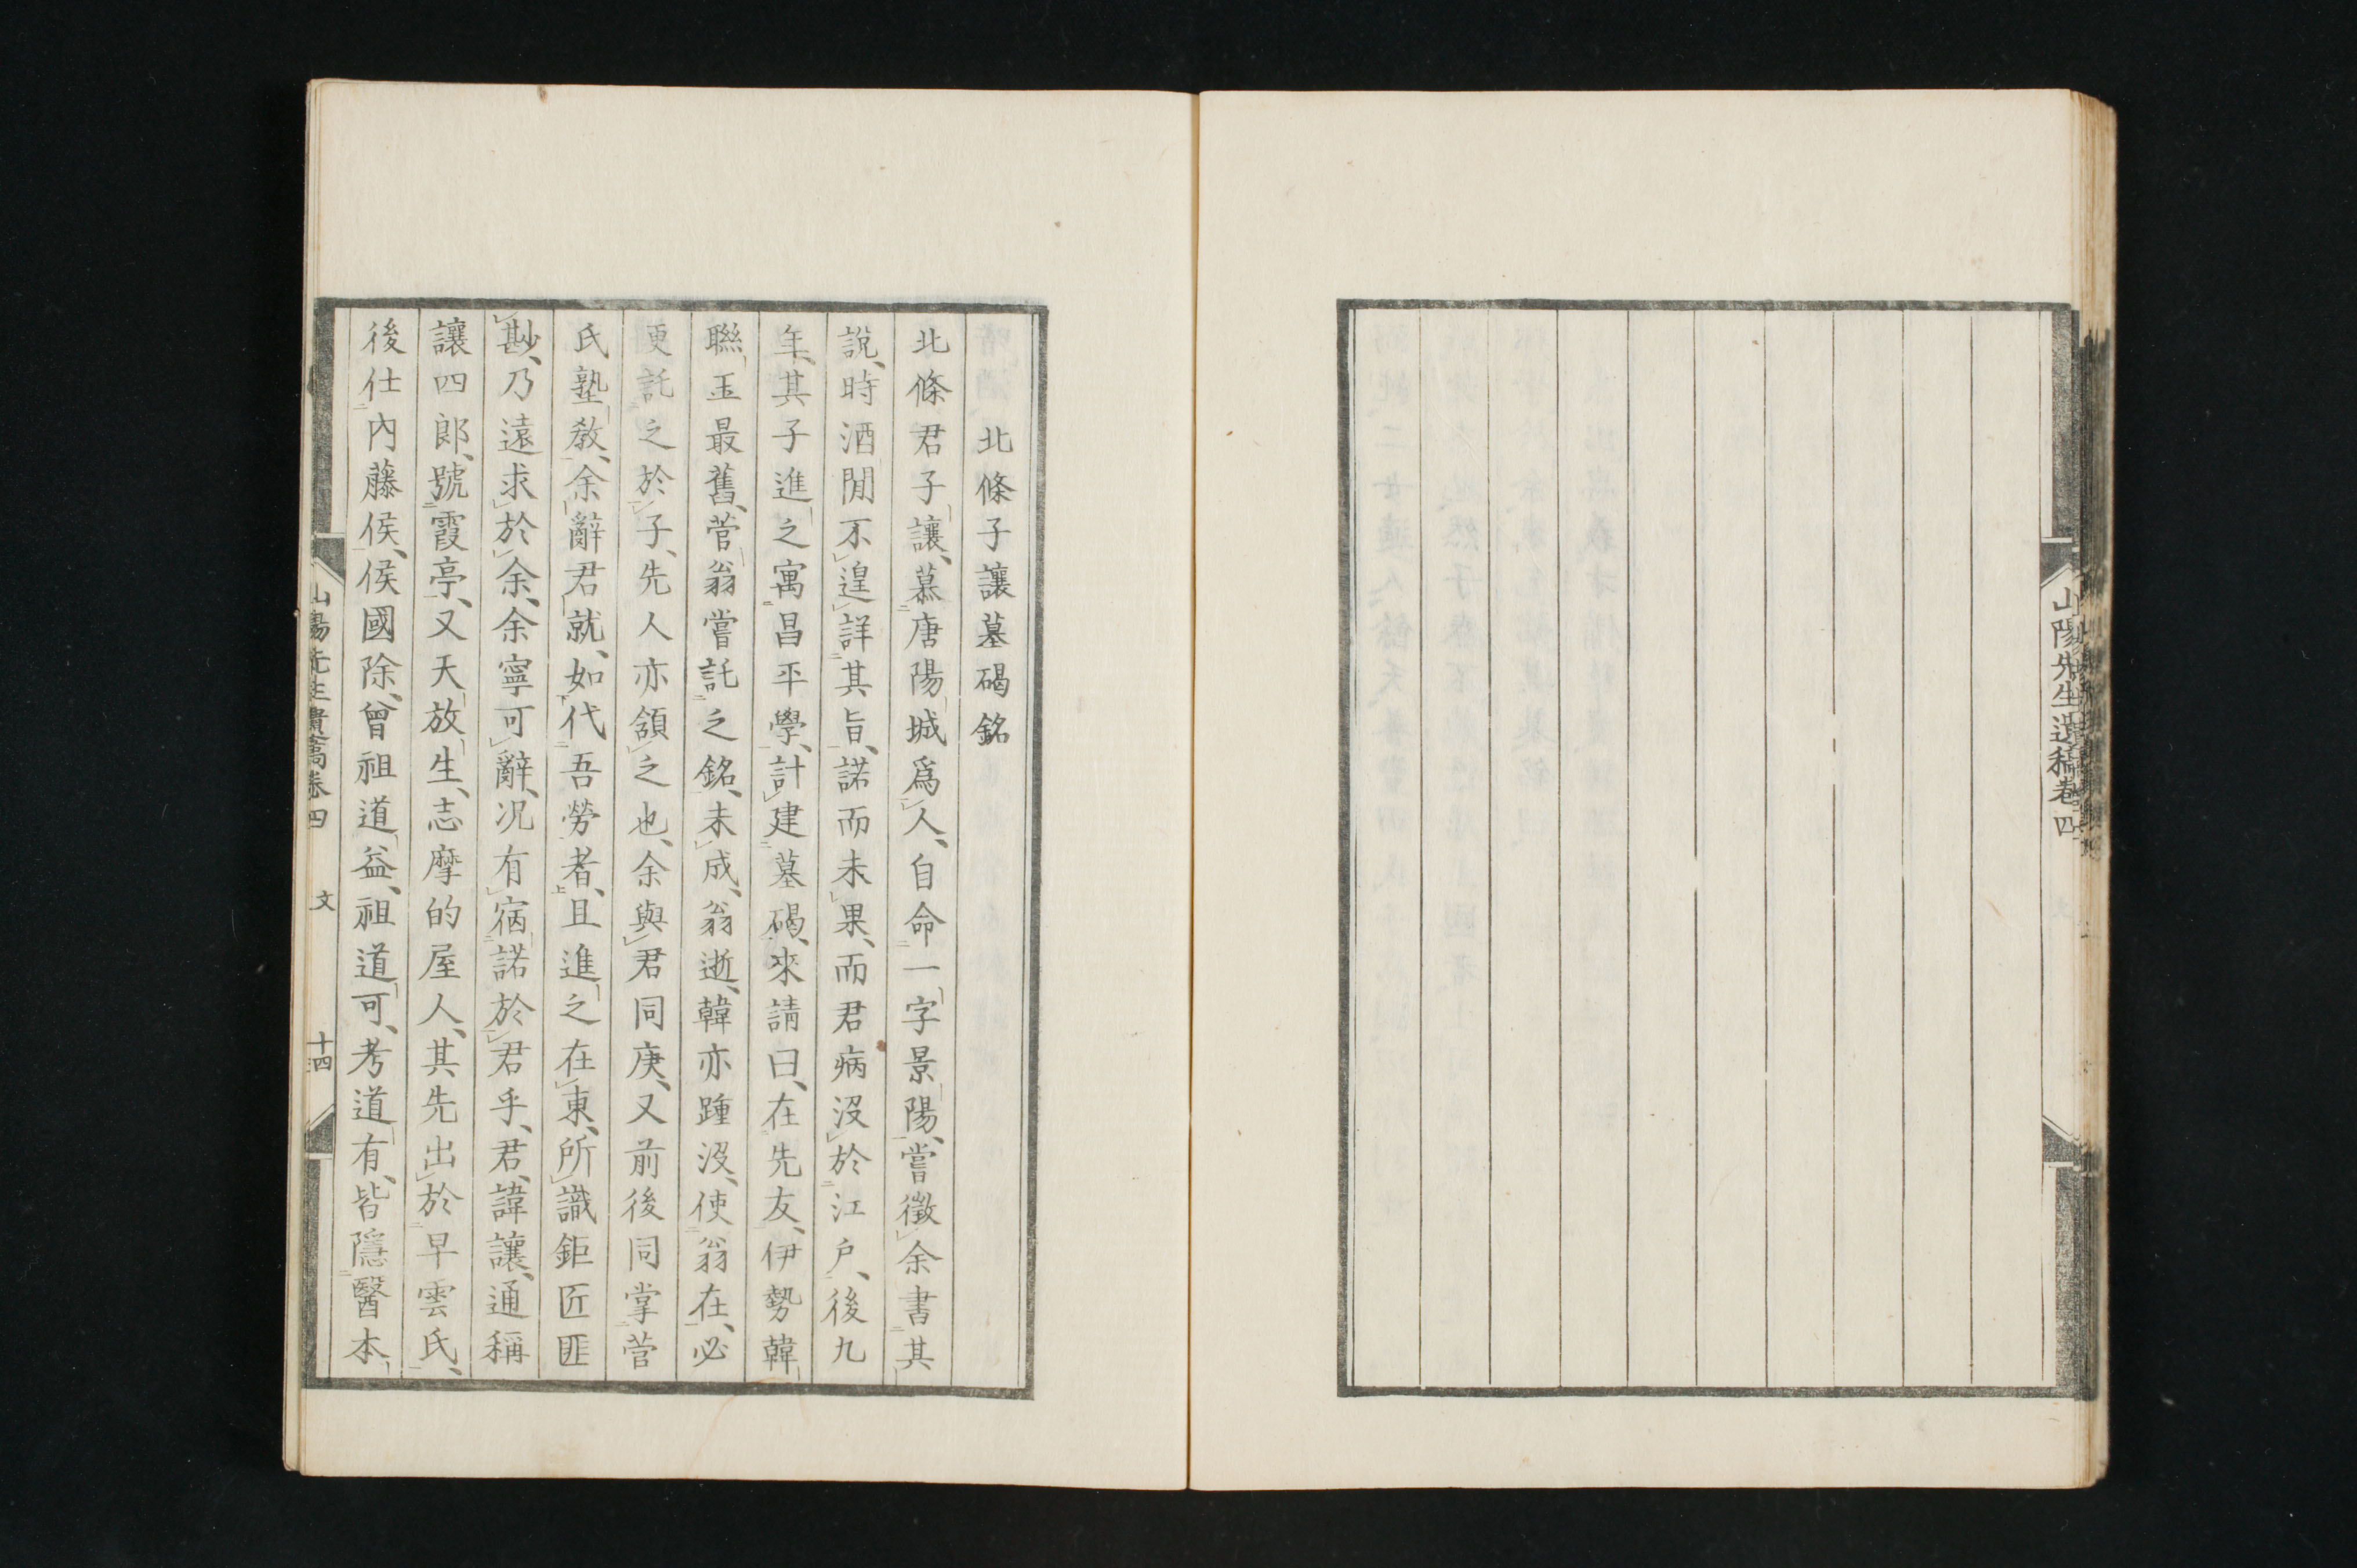 山陽先生遺稿卷四
北條子讓墓碣銘
北條君子讓、慕唐陽城爲人、自命一字景陽、嘗徵余書其
說、時洒閒不遑詳其旨、諾而未果、而君病沒於江戶、後九
年、其子進之寓昌平學、計建墓碣、來請曰、在先友、伊勢韓
聯玉最舊、菅翁嘗託之銘、未成、翁逝、韓亦踵沒、使翁在、必
更託之於子、先人亦頷之也、余與君同庚、又前後同掌菅
氏塾敎、余辭君就、如代吾勞者、且進之在東、所識鉅匠匪
尠、乃遠求於余、余寧可辭、況有宿諾於君乎、君諱讓、通稱
讓四郎、號霞亭、又天放生、志摩的屋人、其先出於早雲氏、
後仕內藤侯、侯國除、曾祖道益、祖道可、考道有、皆隱醫本、
山陽先生遺稿卷四 文 十四